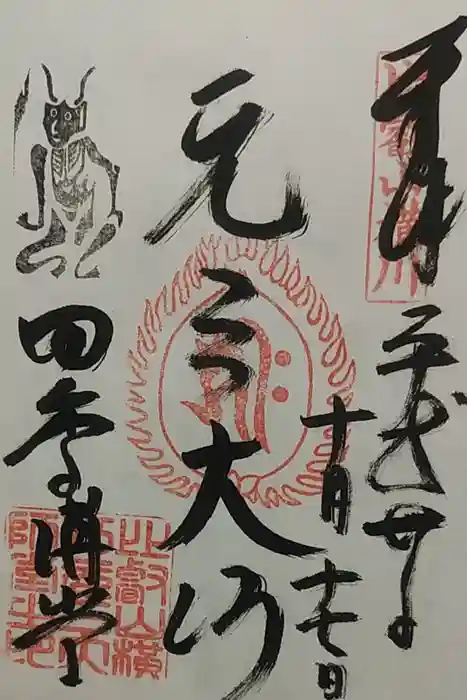 奉拝
比叡山横川
平成廿年
十月十七日
元三大師
四季講堂
比叡山横